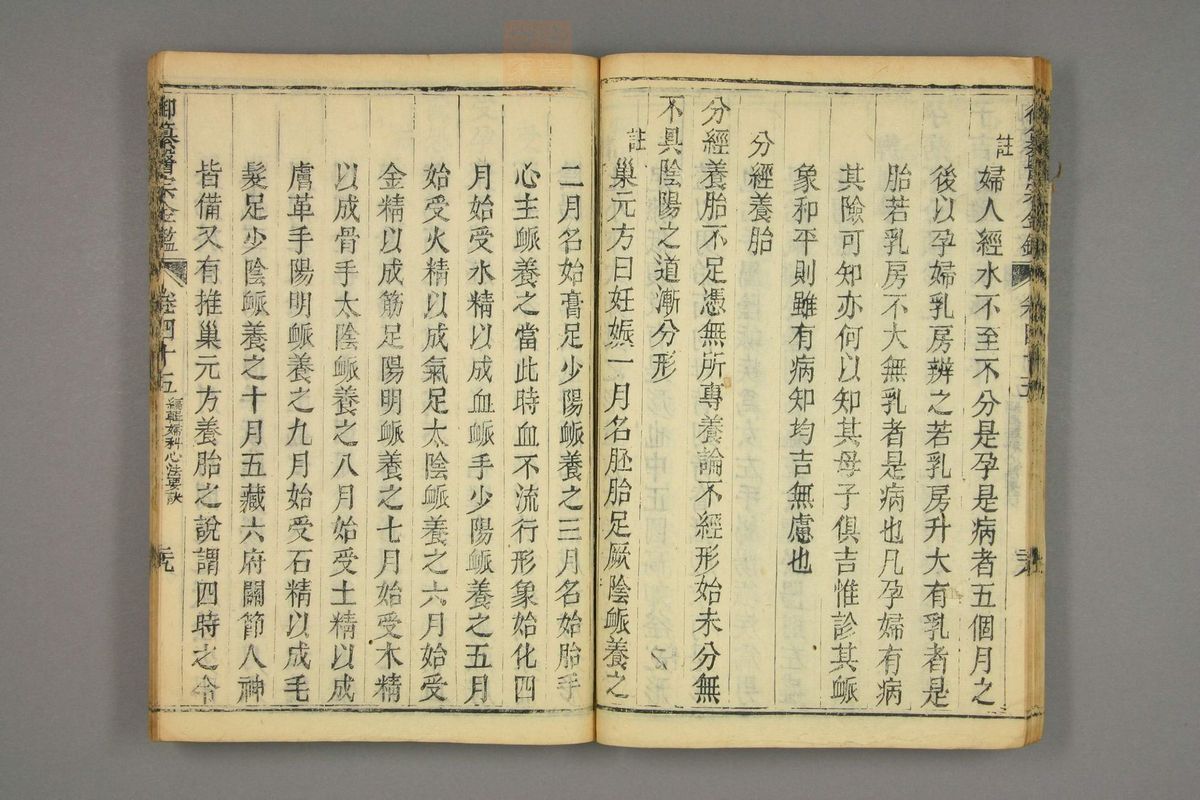 註
婦人經水不至不分是孕是病者五個月之
後以孕婦乳房辨之若乳房升大有乳者是
胎若乳房不大無乳者是病也凡孕婦有病
其險可知亦何以知其母子俱吉惟診其脈
象和平則雖有病知均吉無慮也
分經養胎
分經養胎不足憑無所專養論不經形始未分無
不具陰陽之道漸分形
註
巢元方曰妊娠一月名胚胎足厥陰脈養之
二月名始膏足少陽脈養之三月名始胎手
心主脈養之當此時血不流行形象始化四
月始受水精以成血脈手少陽脈養之五月
始受火精以成氣足太陰脈養之六月始受
金精以成筋足陽明脈養之七月始受木精
以成骨手太陰脈養之八月始受土精以成
膚革手陽明脈養之九月始受石精以成毛
髮足少陰脈養之十月五藏六府關節人神
皆備又有推巢元方養胎之說謂四時之令
御纂醫宗金鑑
卷四十五
編輯婦科心法要訣
二九